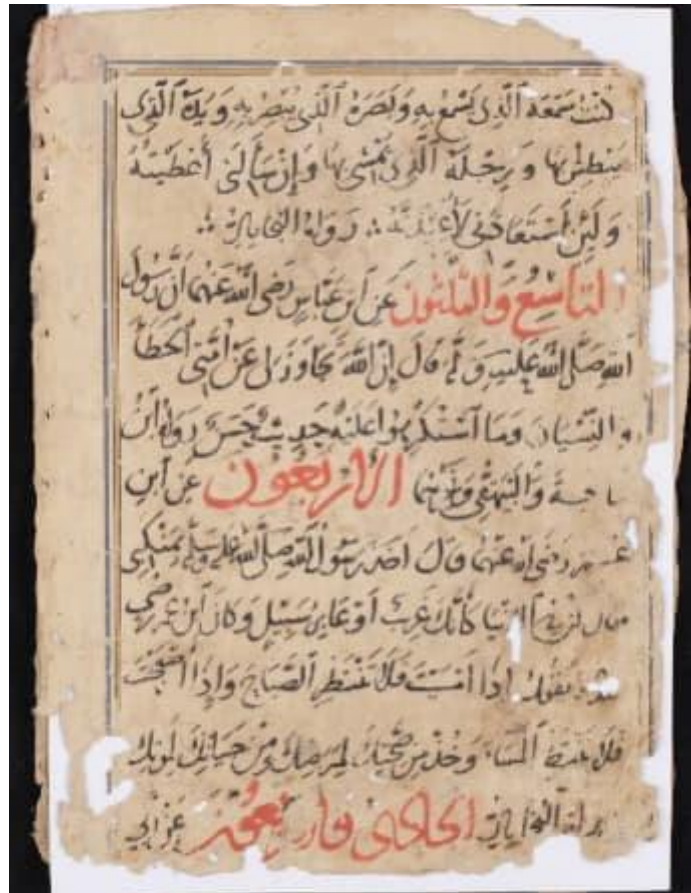 كنت سمعه الذي يسمع به وبصره الذي يبصر به ويده التي
يبطش بها ورجله التي يمشي بها وإن سألني أعطيته
ولئن استعاذني لأعيذنه رواه البخاري
التاسع والثلثون عن ابن عباس رضي الله عنهما أن رسول
الله صلى الله عليه وسلم قال إن الله تجاوز لي عن أمتي الخطأ
والنسيان وما استكرهوا عليه حديث حسن رواه ابن
ماجة والبيهقي وغيرهما الأربعون عن ابن
عمر رضي الله عنهما قال اخذ رسول الله صلى الله عليه وسلم بمنكبي
فقال كن في الدنيا كأنك غريب أو عابر سبيل وكان ابن عمر رضي
يقول إذا أمسيت فلا تنتظر الصباح وإذا أصبحت
فلا تنتظر المساء وخذ من صحتك لمرضك ومن حياتك لموتك
رواه البخاري الحادي واربعون عن أبي